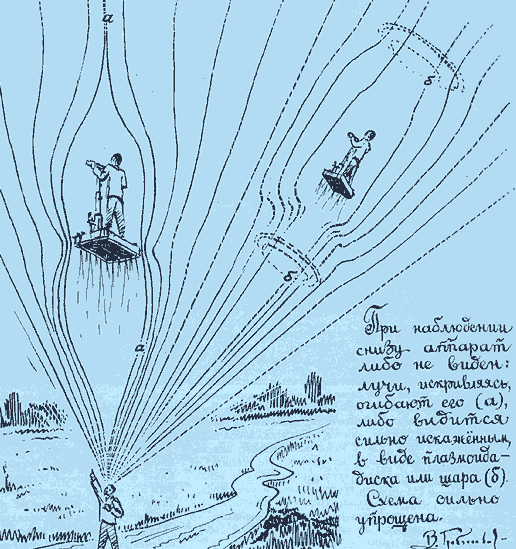 а
б
б
а
При наблюдении
снизу аппарат
либо не виден:
лучи, искривляясь,
огибают его (а),
либо видится
сильно искажённым,
в виде плазмоида-
диска или шара (б).
Схема сильно
упрощена.